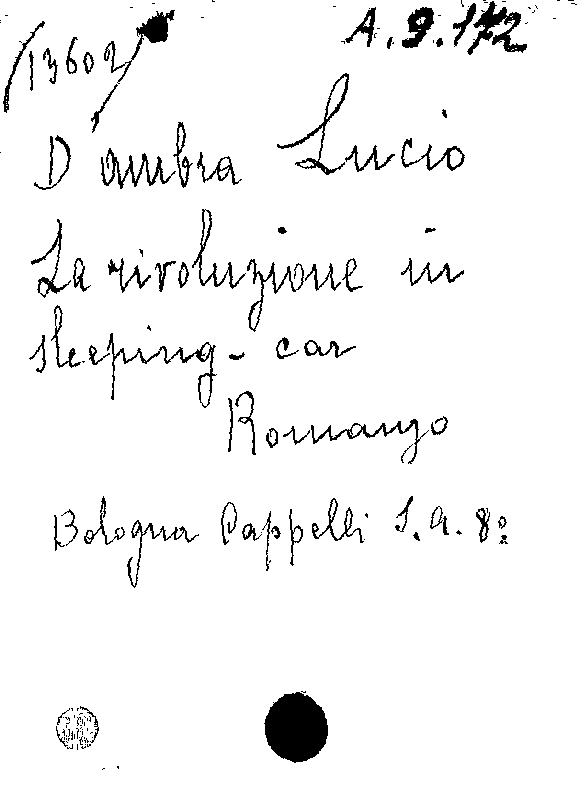 13602
A.9.172
D'ambra Lucio
La rivoluzione in
sleeping-car
Romanzo
Bologna Cappelli S.a. 8º